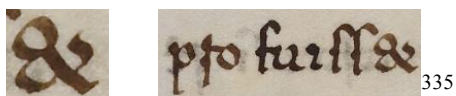 & pſto fuiſſ& 335